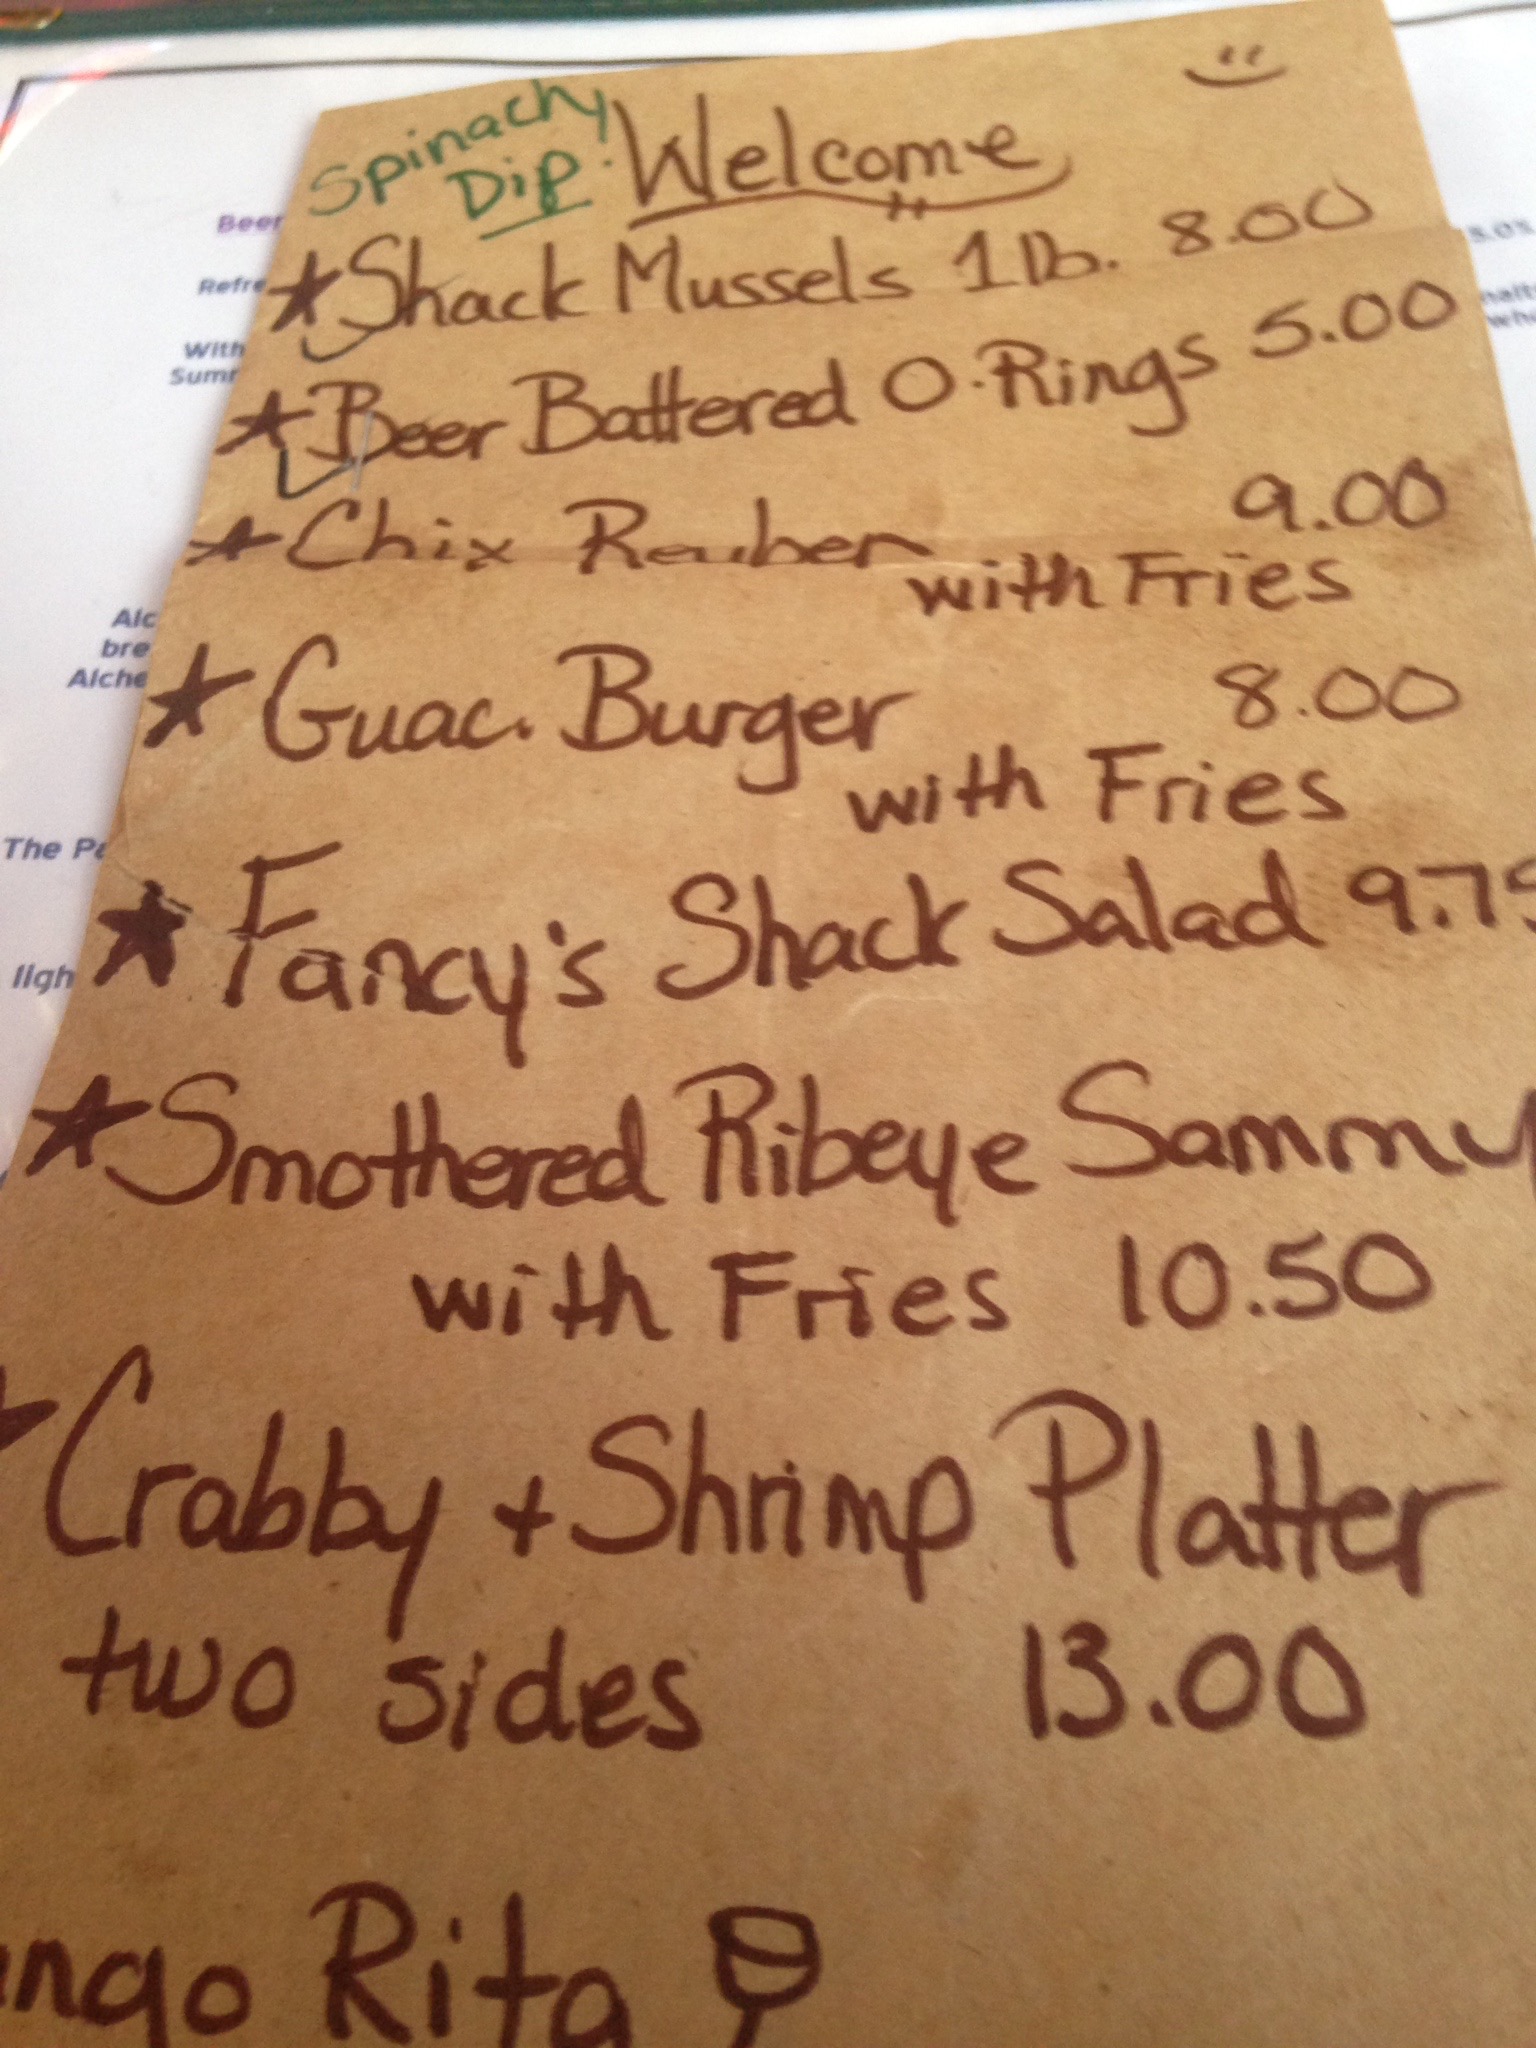 Spinachy
Dip! Welcome
Shack Mussels 1 lb. 8.00
Beer Battered O-Rings 5.00
Chix Reuben 9.00
with Fries
Guac. Burger 8.00
with Fries
Fancy's Shack Salad 9.75
Smothered Ribeye Sammy
with Fries 10.50
Crabby + Shrimp Platter
two sides 13.00
ango Rita
Beer
Refre
With
Sum
Alc
bre
Alche
The Pa
ligh